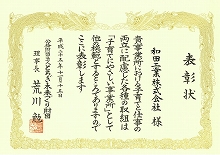 表彰状
和田工業株式会社 様
貴事業所における子育てと仕事の
両立に配慮した各種の取組は
「子育てにやさしい事業所」として
他の模範とするところでありますので
ここに表彰します
平成二十五年十一月十五日
公益財団法人とちぎ未来づくり財団
理事長